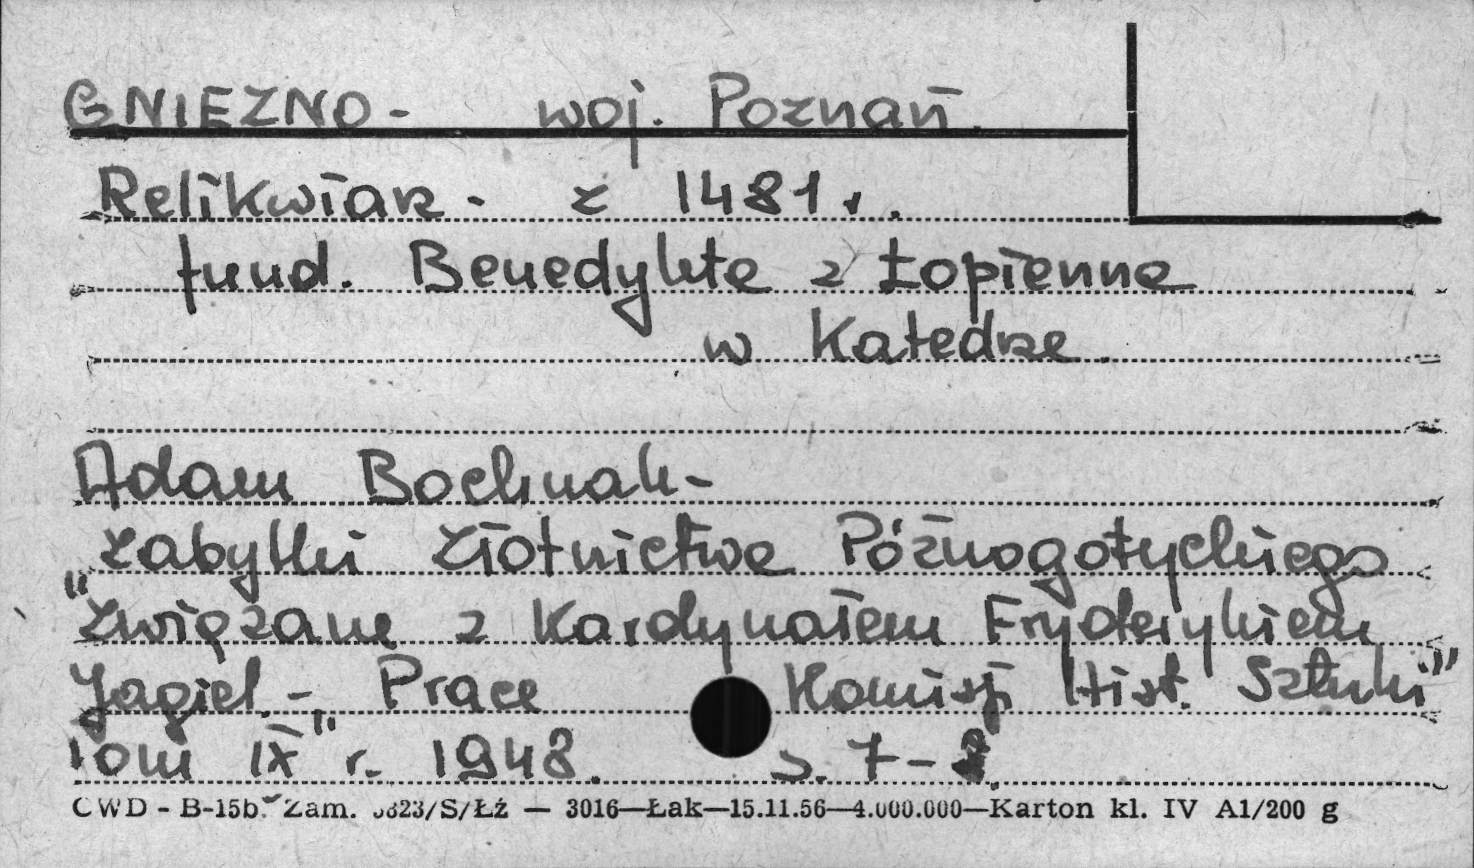 GNIEZNO - woj. Poznań.
Relikwiarz - z 1481 r.
fund. Benedykta z Łopienna
w Katedrze.
Adam Bochnak -
Zabytki Złotnictwa Późnogotyckiego
"Związane z Kardynałem Fryderykiem
Jagiel. - Prace Komisji Hist. Sztuki"
Tom IX" r. 1948. s. 7-
CWD - B-15b. Zam. 3823/S/Łź — 3016—Łak—15.11.56—4.000.000—Karton kl. IV A1/200 g